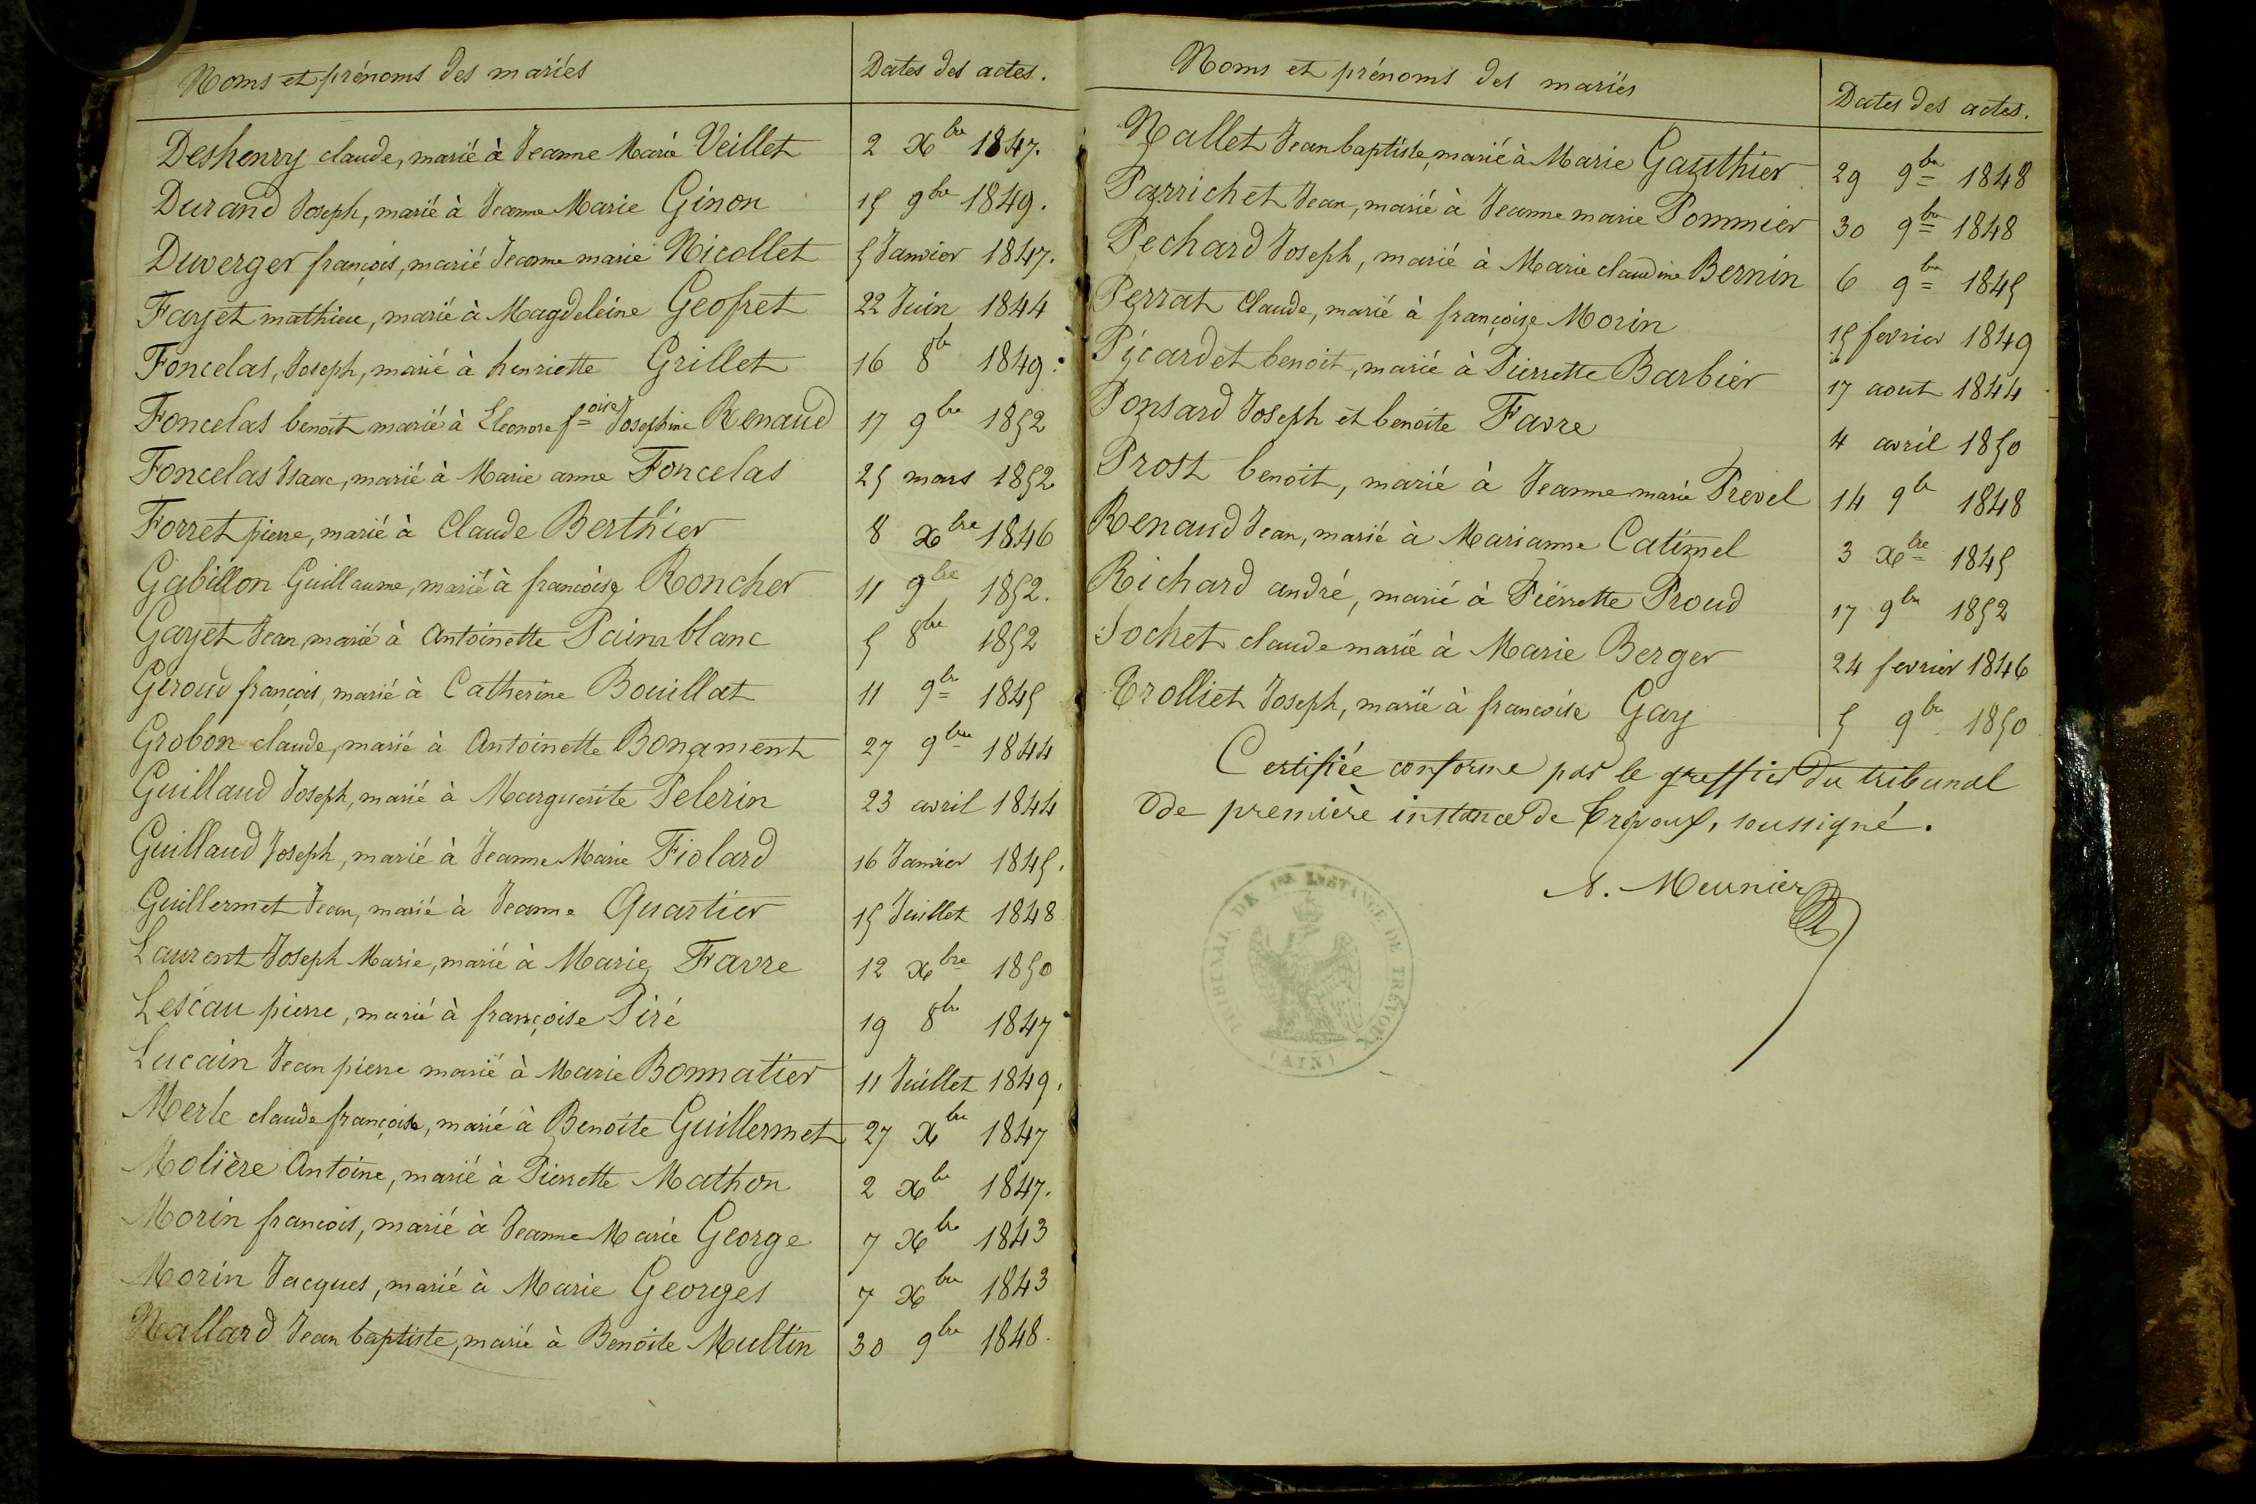 Noms et prénoms des mariés Dates des actes.
Deshenry claude, marié à Jeanne Marie Veillet 2 Xbre 1847.
Durand Joseph, marié à Jeanne Marie Ginon 15 9bre 1849.
Duverger françois, marié Jeanne marie Nicollet 5 Janvier 1847.
Fayet mathieu, marié à Magdeleine Geofret 22 Juin 1844
Foncelas, Joseph, marié à henriette Grillet 16 8b 1849.
Foncelas benoit marié à Eleonore foise Josephine Renaud 17 9bre 1852
Foncelas Isaac, marié à Marie anne Foncelas 25 mars 1852
Forret pierre, marié à Claude Berthier 8 Xbre 1846
Gabillon Guillaume, marié à françoise Roncher 11 9bre 1852.
Gayet Jean, marié à Antoinette Painblanc 5 8bre 1852
Giroud françois, marié à Catherine Bouillat 11 9bre 1845
Grobon claude, marié à Antoinette Bonament 27 9bre 1844
Guillaud Joseph, marié à Marguerite Pelerin 23 avril 1844
Guillaud Joseph, marié à Jeanne Marie Fiolard 16 Janvier 1845.
Guillermet Jean, marié à Jeanne Quartier 15 Juillet 1848
Laurent Joseph Marie, marié à Marie Favre 12 Xbre 1850
Lescau pierre, marié à françoise Piré 19 8bre 1847
Lucain Jean pierre marié à Marie Bonnatier 11 Juillet 1849.
Merle claude françois, marié à Benoite Guillermet 27 Xbre 1847
Molière Antoine, marié à Pierrette Mathon 2 Xbre 1847.
Morin francois, marié à Jeanne Marie George 7 Xbre 1843
Morin Jacques, marié à Marie Georges 7 Xbre 1843
Nallard Jean baptiste, marié à Benoite Multin 30 9bre 1848.
Noms et prénoms des mariés Dates des actes.
Nallet Jean baptiste, marié à Marie Gauthier 29 9bre 1848
Parrichet Jean, marié à Jeanne marie Pommier 30 9bre 1848
Pechard Joseph, marié à Marie claudine Bernin 6 9bre 1845
Perrat Claude, marié à françoise Morin 15 fevrier 1849
Picardet benoit, marié à Pierrette Barbier 17 aout 1844
Ponsard Joseph et benoite Favre 4 avril 1850
Prost benoit, marié à Jeanne marie Prevel 14 9b 1848
Renaud Jean, marié à Marianne Catimel 3 Xbre 1845
Richard andré, marié à Pierrette Proud 17 9bre 1852
Sochet claude marié à Marie Berger 24 fevrier 1846
Trolliet Joseph, marié à francoise Gay 5 9bre 1850
Certifiée conforme par le greffier du tribunal
de première instance de Trévoux, soussigné.
A. Meunier
TRIBUNAL DE 1RE INSTANCE DE TRÉVOUX
(AIN)